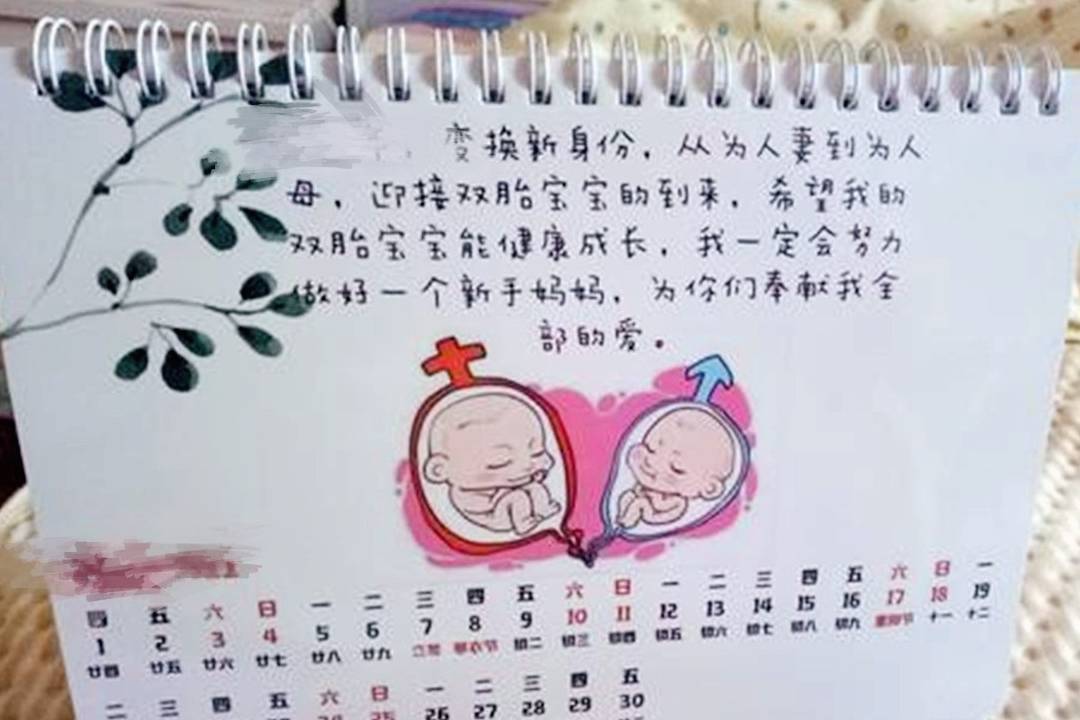 变换新身份，从为人妻到为人
母，迎接双胎宝宝的到来，希望我的
双胎宝宝能健康成长，我一定会努力
做好一个新手妈妈，为你们奉献我全
部的爱。
四 五 六 日 一 二 三 四 五 六 日 一 二 三 四 五 六 日 一
1 2 3 4 5 6 7 8 9 10 11 12 13 14 15 16 17 18 19
廿四 廿五 廿六 廿七 廿八 廿九 寒衣节 初二 初三 初四 初五 初六 初七 初八 初九 十一 十二
二 三 四 五 六 日 一 二 三 四 五
24 25 26 27 28 29 30